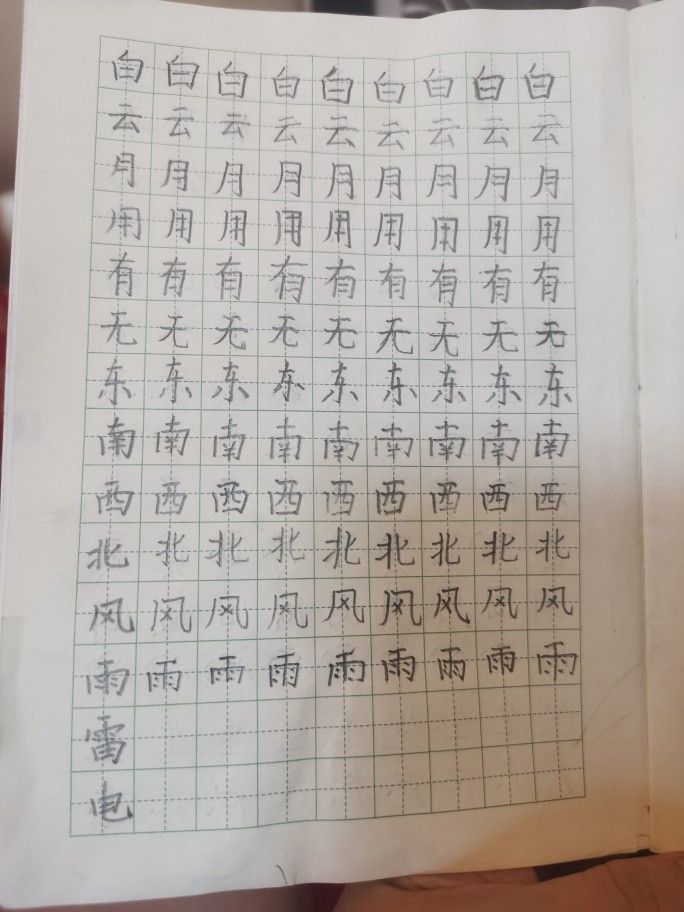 白白白白白白白白白
云云云云云云云云云
月月月月月月月月月
用用用用用用用用用
有有有有有有有有有
无无无无无无无无无
东东东东东东东东东
南南南南南南南南南
西西西西西西西西西
北北北北北北北北北
风风风风风风风风风
雨雨雨雨雨雨雨雨雨
雷
电